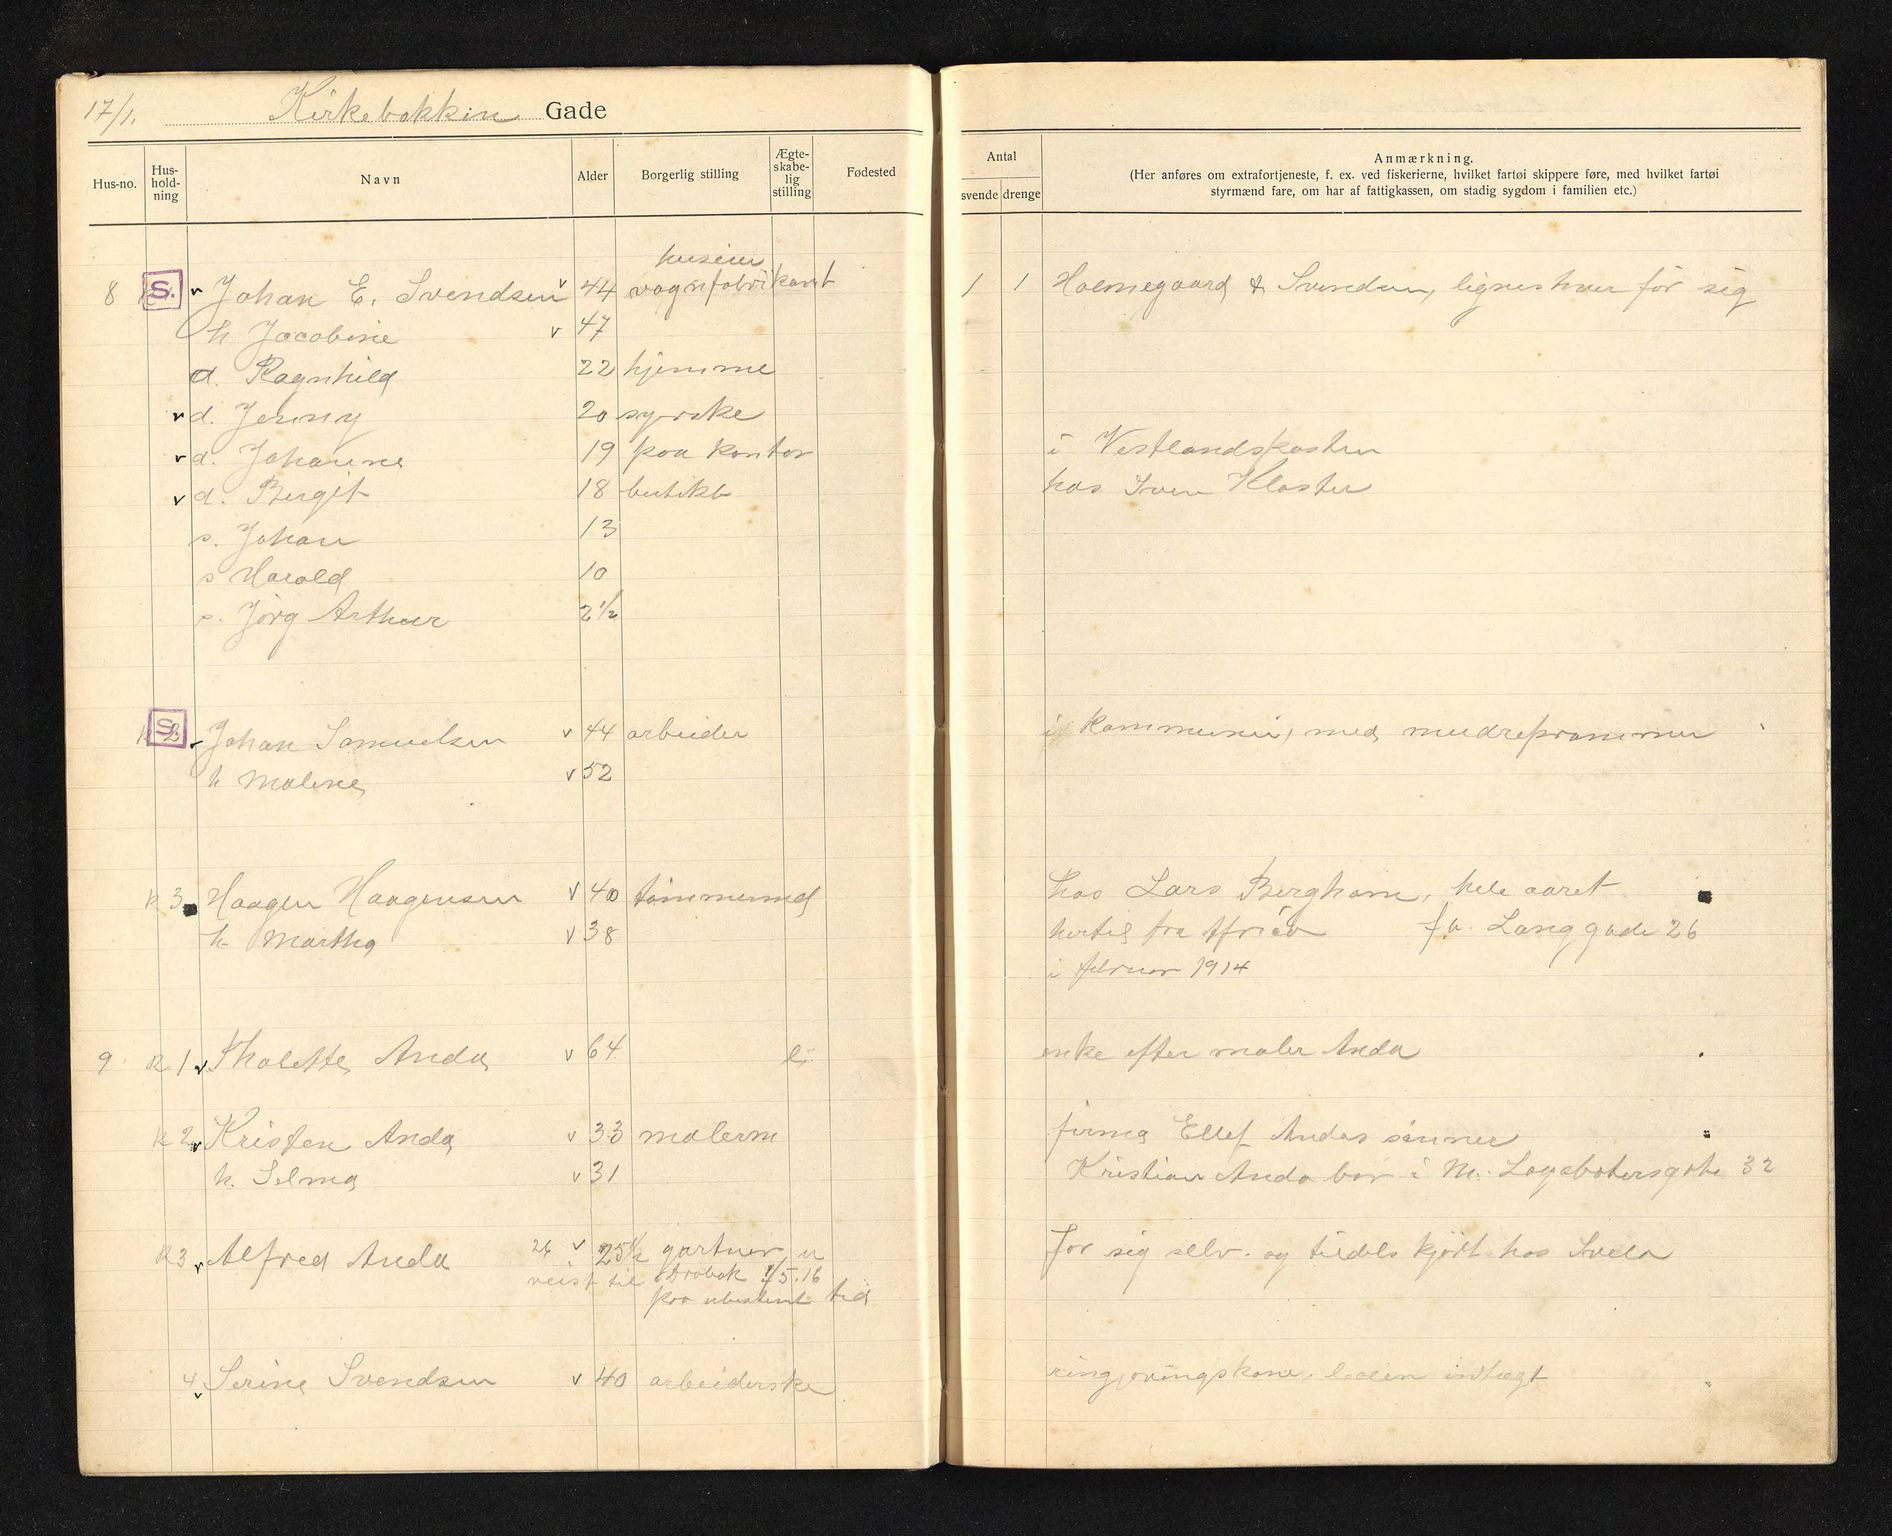 17/1. Kirkebakken Gade
Hus-no. Hus-hold-ning Navn Alder Borgerlig stilling Ægte-skabe-lig stilling Fødested
Antal svende drenge Anmærkning.
(Her anføres om extrafortjeneste, f. ex. ved fiskerierne, hvilket fartøi skippere føre, med hvilket fartøi
styrmænd fare, om har af fattigkassen, om stadig sygdom i familien etc.)
huseier
8 S. v Johan E. Svendsen v 44 vognfabrikant 1 1 Holmegaard & Svendsen, lignes hver for sig
h Jacobine v 47
d. Ragnhild 22 hjemme
v d. Jenny 20 syerske
v d. Johanne 19 paa kontor i Vestlandsposten
v d. Bergit 18 butikk hos Sven Kloster
s. Johan 13
s Harald 10
s. Jörg Arthur 2½
S. 2 v Johan Samuelsen v 44 arbeider i kommunen, med mudreprammen
h Malene v 52
k 3 Haagen Haagensen v 40 tømmermd hos Lars Bergham, hele aaret
h Martha v 38 hertil fra Africa fv. Langgade 26
i februar 1914
9 k 1 v Tholette Anda v 64 e enke efter maler Anda
k 2 v Kristen Anda v 33 malerm firma Ellef Andas sønner
h. Selma v 31 Kristian Anda bor i M. Lagabøtersgate 32
k 3 v Alfred Anda 26 v 25½ gartner u for sig selv. og tildels kjørt hos Svela
reist til Drøbak 1/5.16
paa ubestemt tid
4 v Serine Svendsen v 40 arbeiderske ringjøringskone, liden indtægt